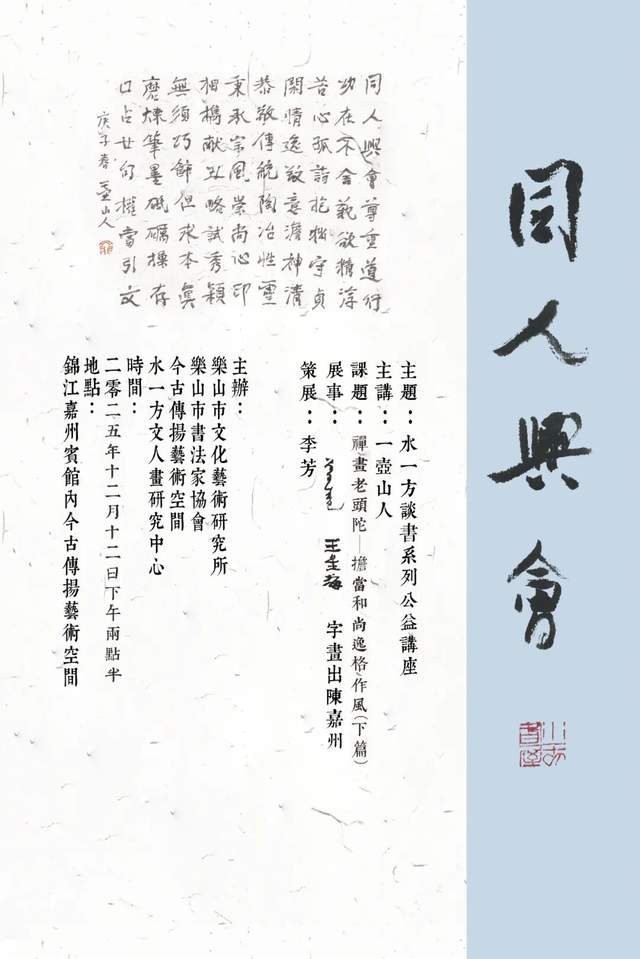 同人興會
同人興會尊重道行
功在不舍藝欲精淳
苦心孤詣抱樸守貞
閑情逸致意澹神清
恭敬傳統陶冶性靈
秉承宗風崇尚心印
細橅献丑略試秀穎
無須巧飾但求本真
磨煉筆墨砥礪操存
口占廿句權當引文
庚子春 壺山人
主題：水一方談書系列公益講座
主講：一壺山人
課題：禪畫老頭陀—擔當和尚逸格作風（下篇）
展事： 字畫出陳嘉州
策展：李芳
主辦：
樂山市文化藝術研究所
樂山市書法家協會
今古傳揚藝術空間
水一方文人畫研究中心
時間：
二零二五年十二月十二日下午兩點半
地點：
錦江嘉州賓館內今古傳揚藝術空間